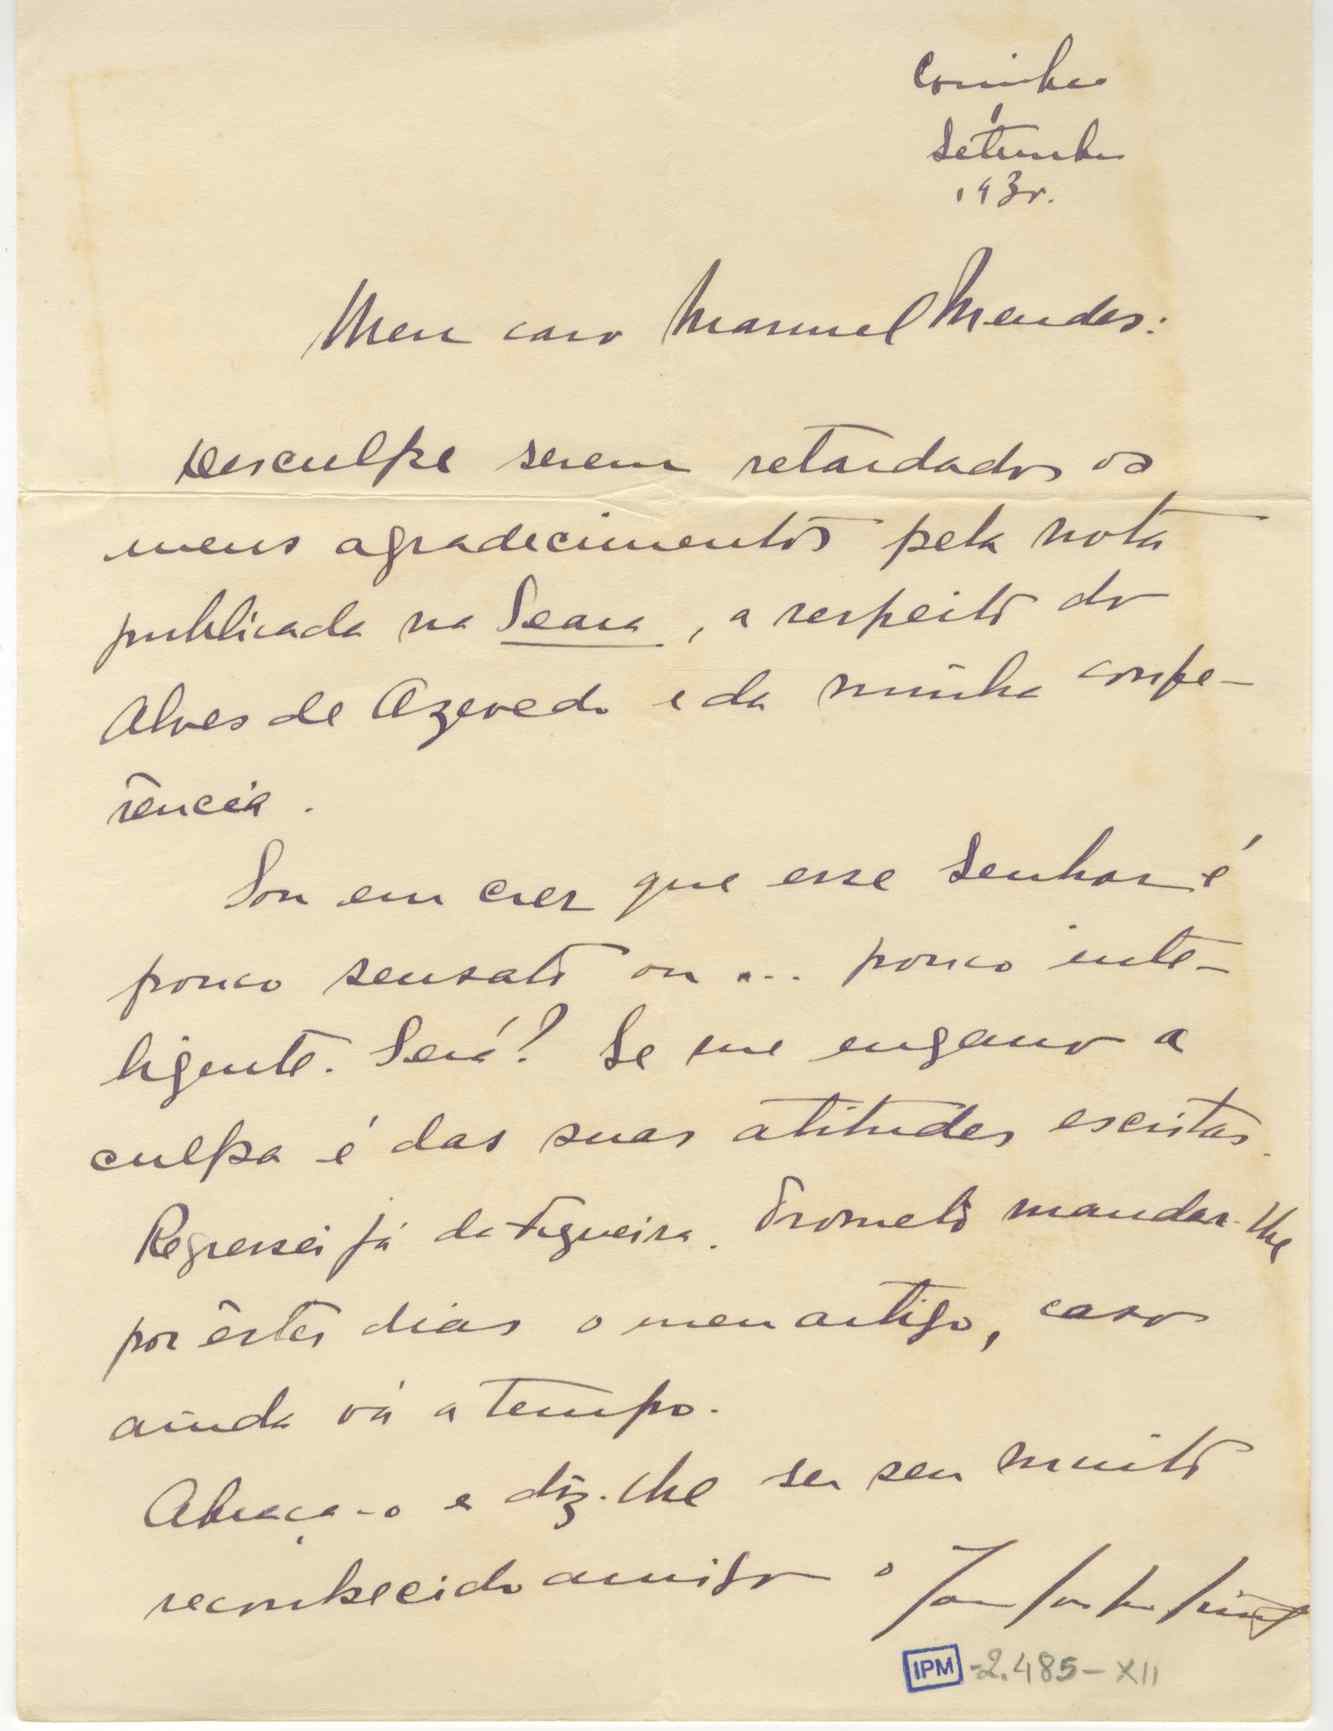 Coimbra
Setembro
193
Meu caro Manuel Mendes:
Desculpe serem retardados os
meus agradecimentos pela nota
publicada na Seara, a respeito do
Alves de Azevedo e da minha confe-
rência.
Sou em crer que esse Senhor é
pouco sensato ou ... pouco inte-
ligente. Será? Se me engano a
culpa é das suas atitudes escritas.
Regressei já da Figueira. Prometo mandar-lhe
por êstes dias o meu artigo, caso
ainda vá a tempo.
Abraça-o e diz-lhe ser seu muito
reconhecido amigo o
IPM -2.485-XII